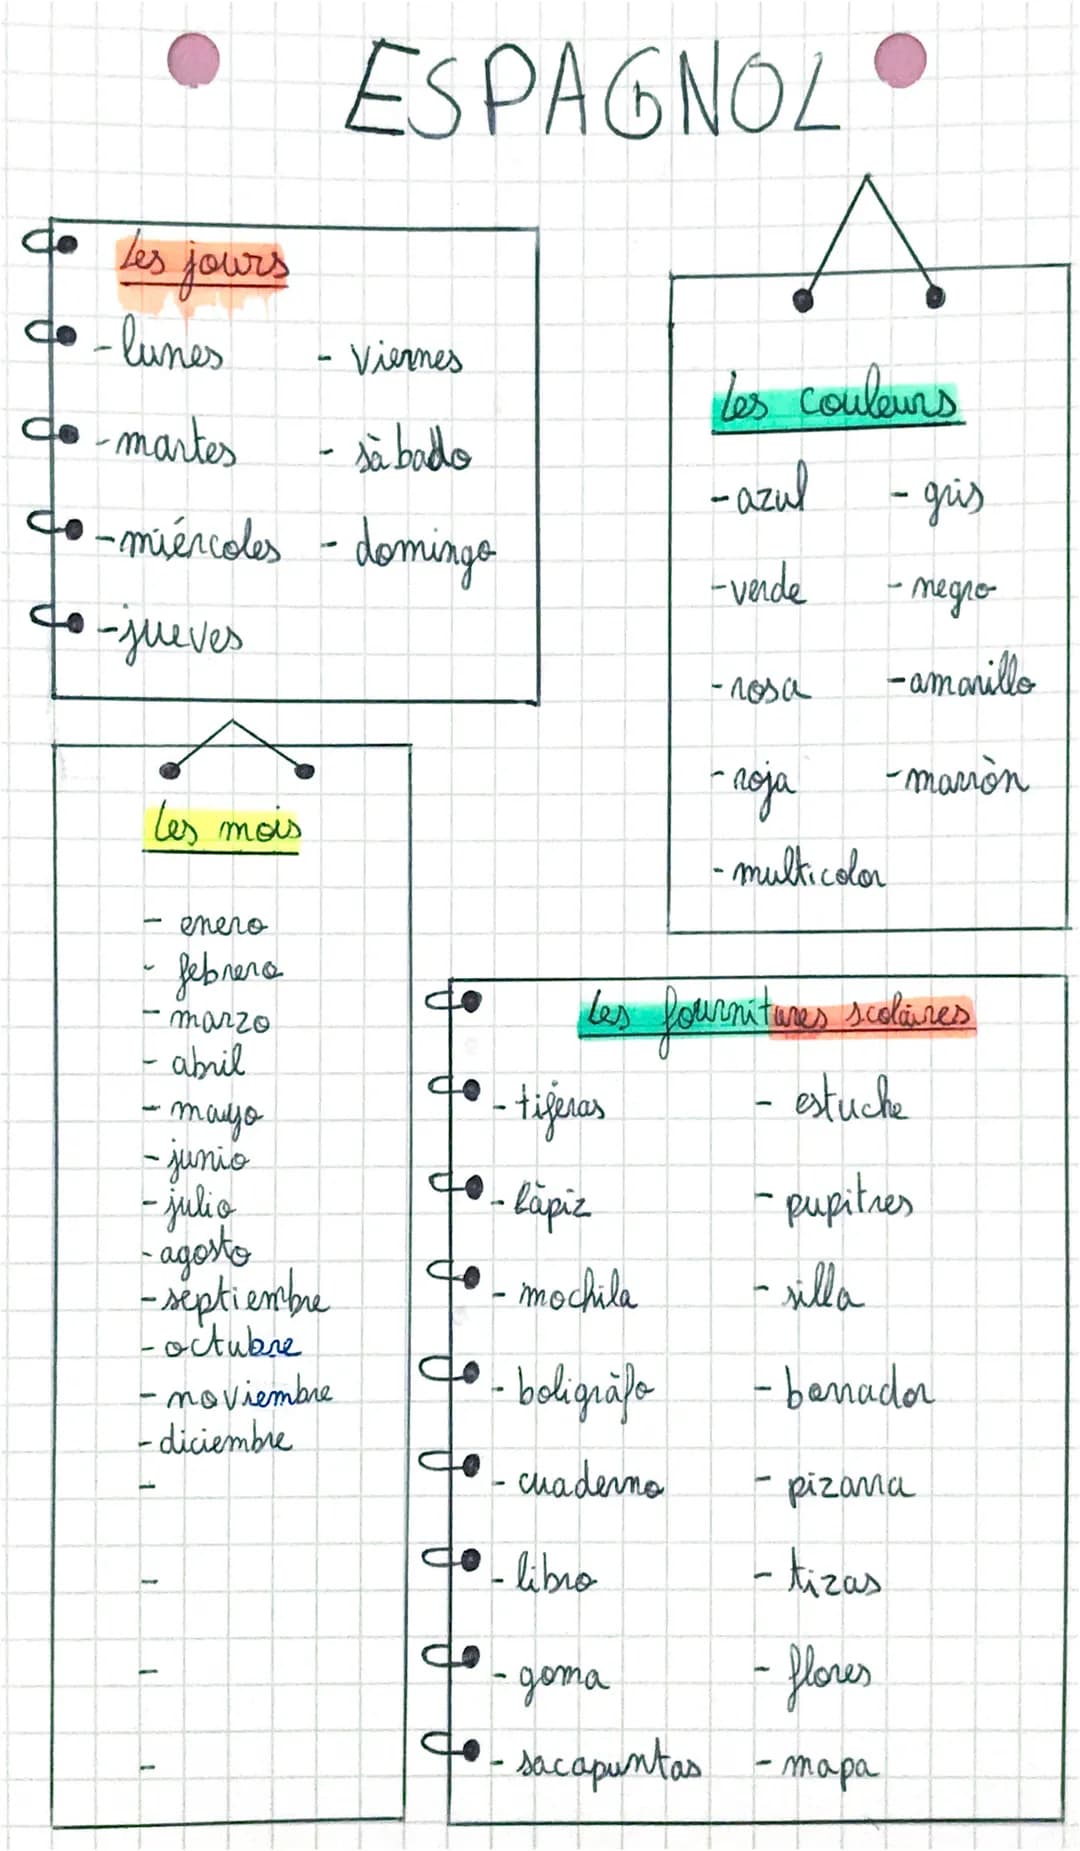 ESPAGNOL
Les jours
- lunes - viernes
- martes - sàbado
- miércoles - domingo
- jueves
Les couleurs
- azul - gris
- verde - negro
- rosa - amarillo
- roja - marròn
- multicolor
Les mois
- enero
- febrero
- marzo
- abril
- mayo
- junio
- julio
- agosto
- septiembre
- octubre
- noviembre
- diciembre
-
-
-
-
Les fournitures scolaires
- tijeras - estuche
- làpiz - pupitres
- mochila - silla
- boligràfo - borrador
- cuaderno - pizarra
- libro - tizas
- goma - flores
- sacapuntas - mapa